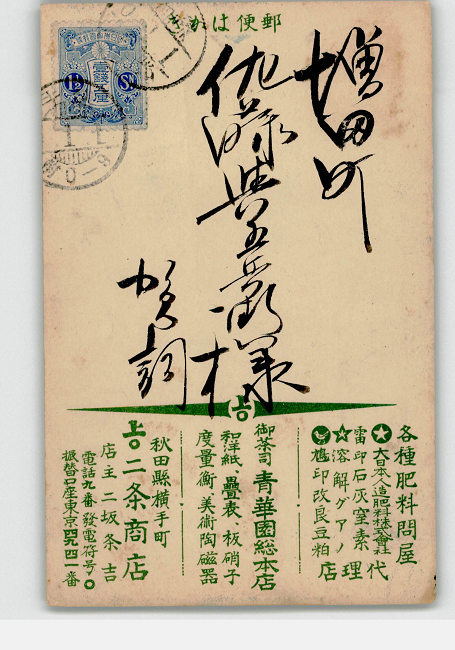 郵便はがき
壹錢五厘
1½ Sn.
増田町
佐藤與五兵衛様
賀詞
各種肥料問屋
大日本人造肥料株式會社
雷印石灰窒素
溶解グアノ
鷹印改良豆粕
代理店
御茶司 青華園総本店
和洋紙、疊表、板硝子
度量衡、美術陶磁器
秋田縣横手町
二条商店
店主 二坂条吉
電話九番 發電符号〇
振替口座東京四九四一番